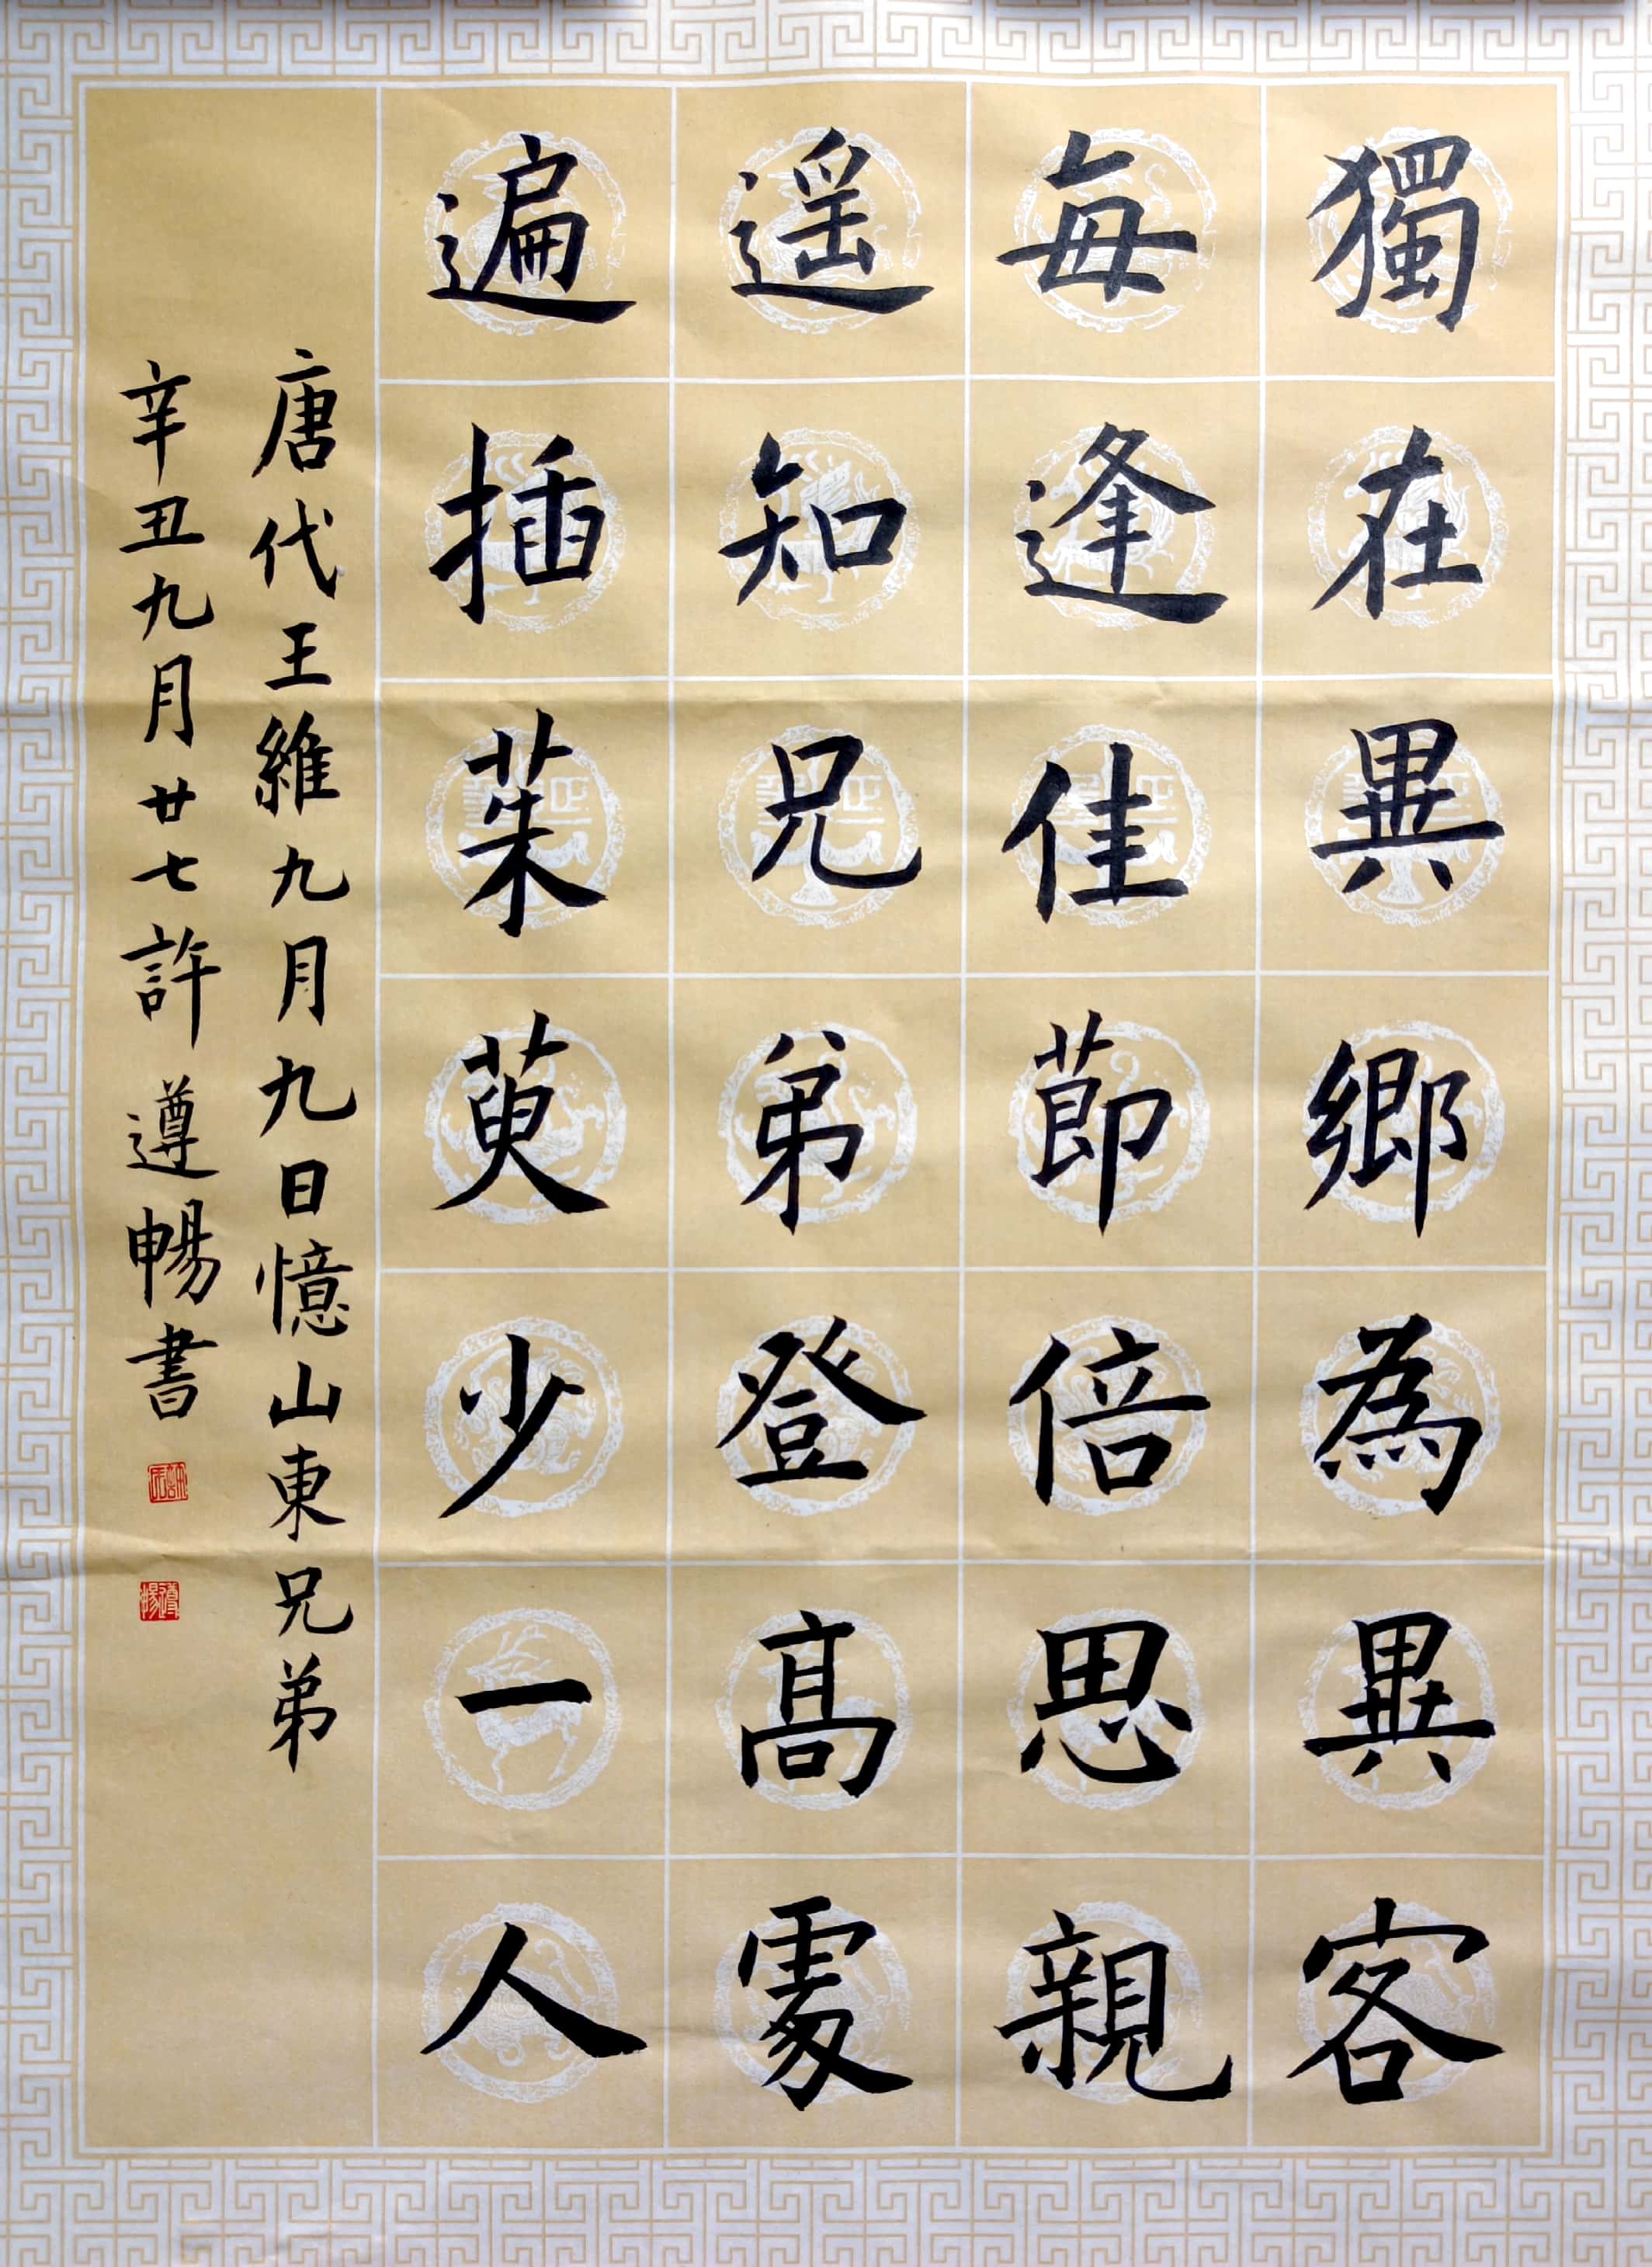 獨在異鄉為異客
每逢佳節倍思親
遥知兄弟登高處
遍插茱萸少一人
唐代王維九月九日憶山東兄弟
辛丑九月廿七許遵暢書
許氏
遵暢